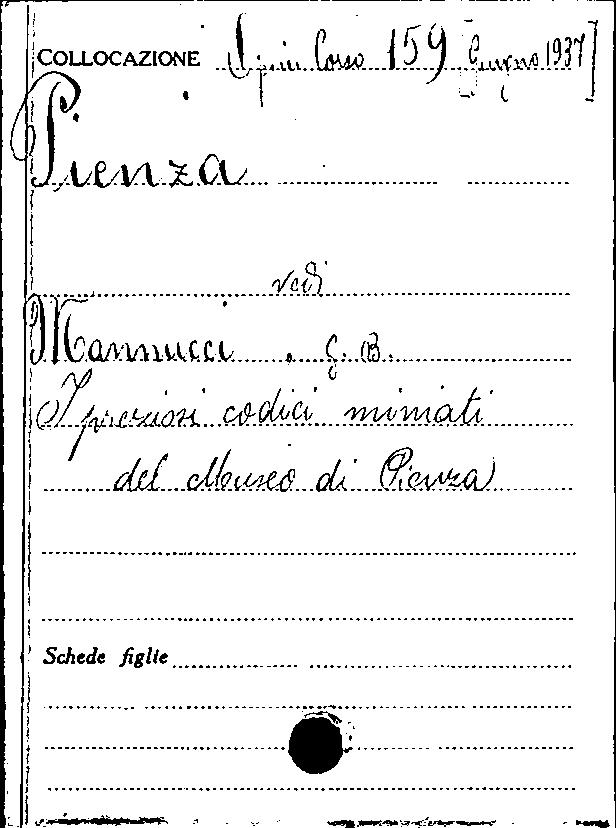 COLLOCAZIONE Corso 159 [Giugno 1937]
Pienza
vedi
Mannucci . G. B.
I preziosi codici miniati
del Museo di Pienza
Schede figlie